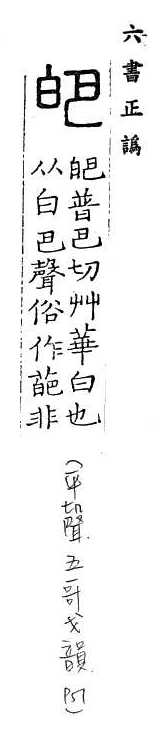 六書正譌
皅
皅普巴切艸華白也
从白巴聲俗作葩非
(平聲五哥戈韻P51)